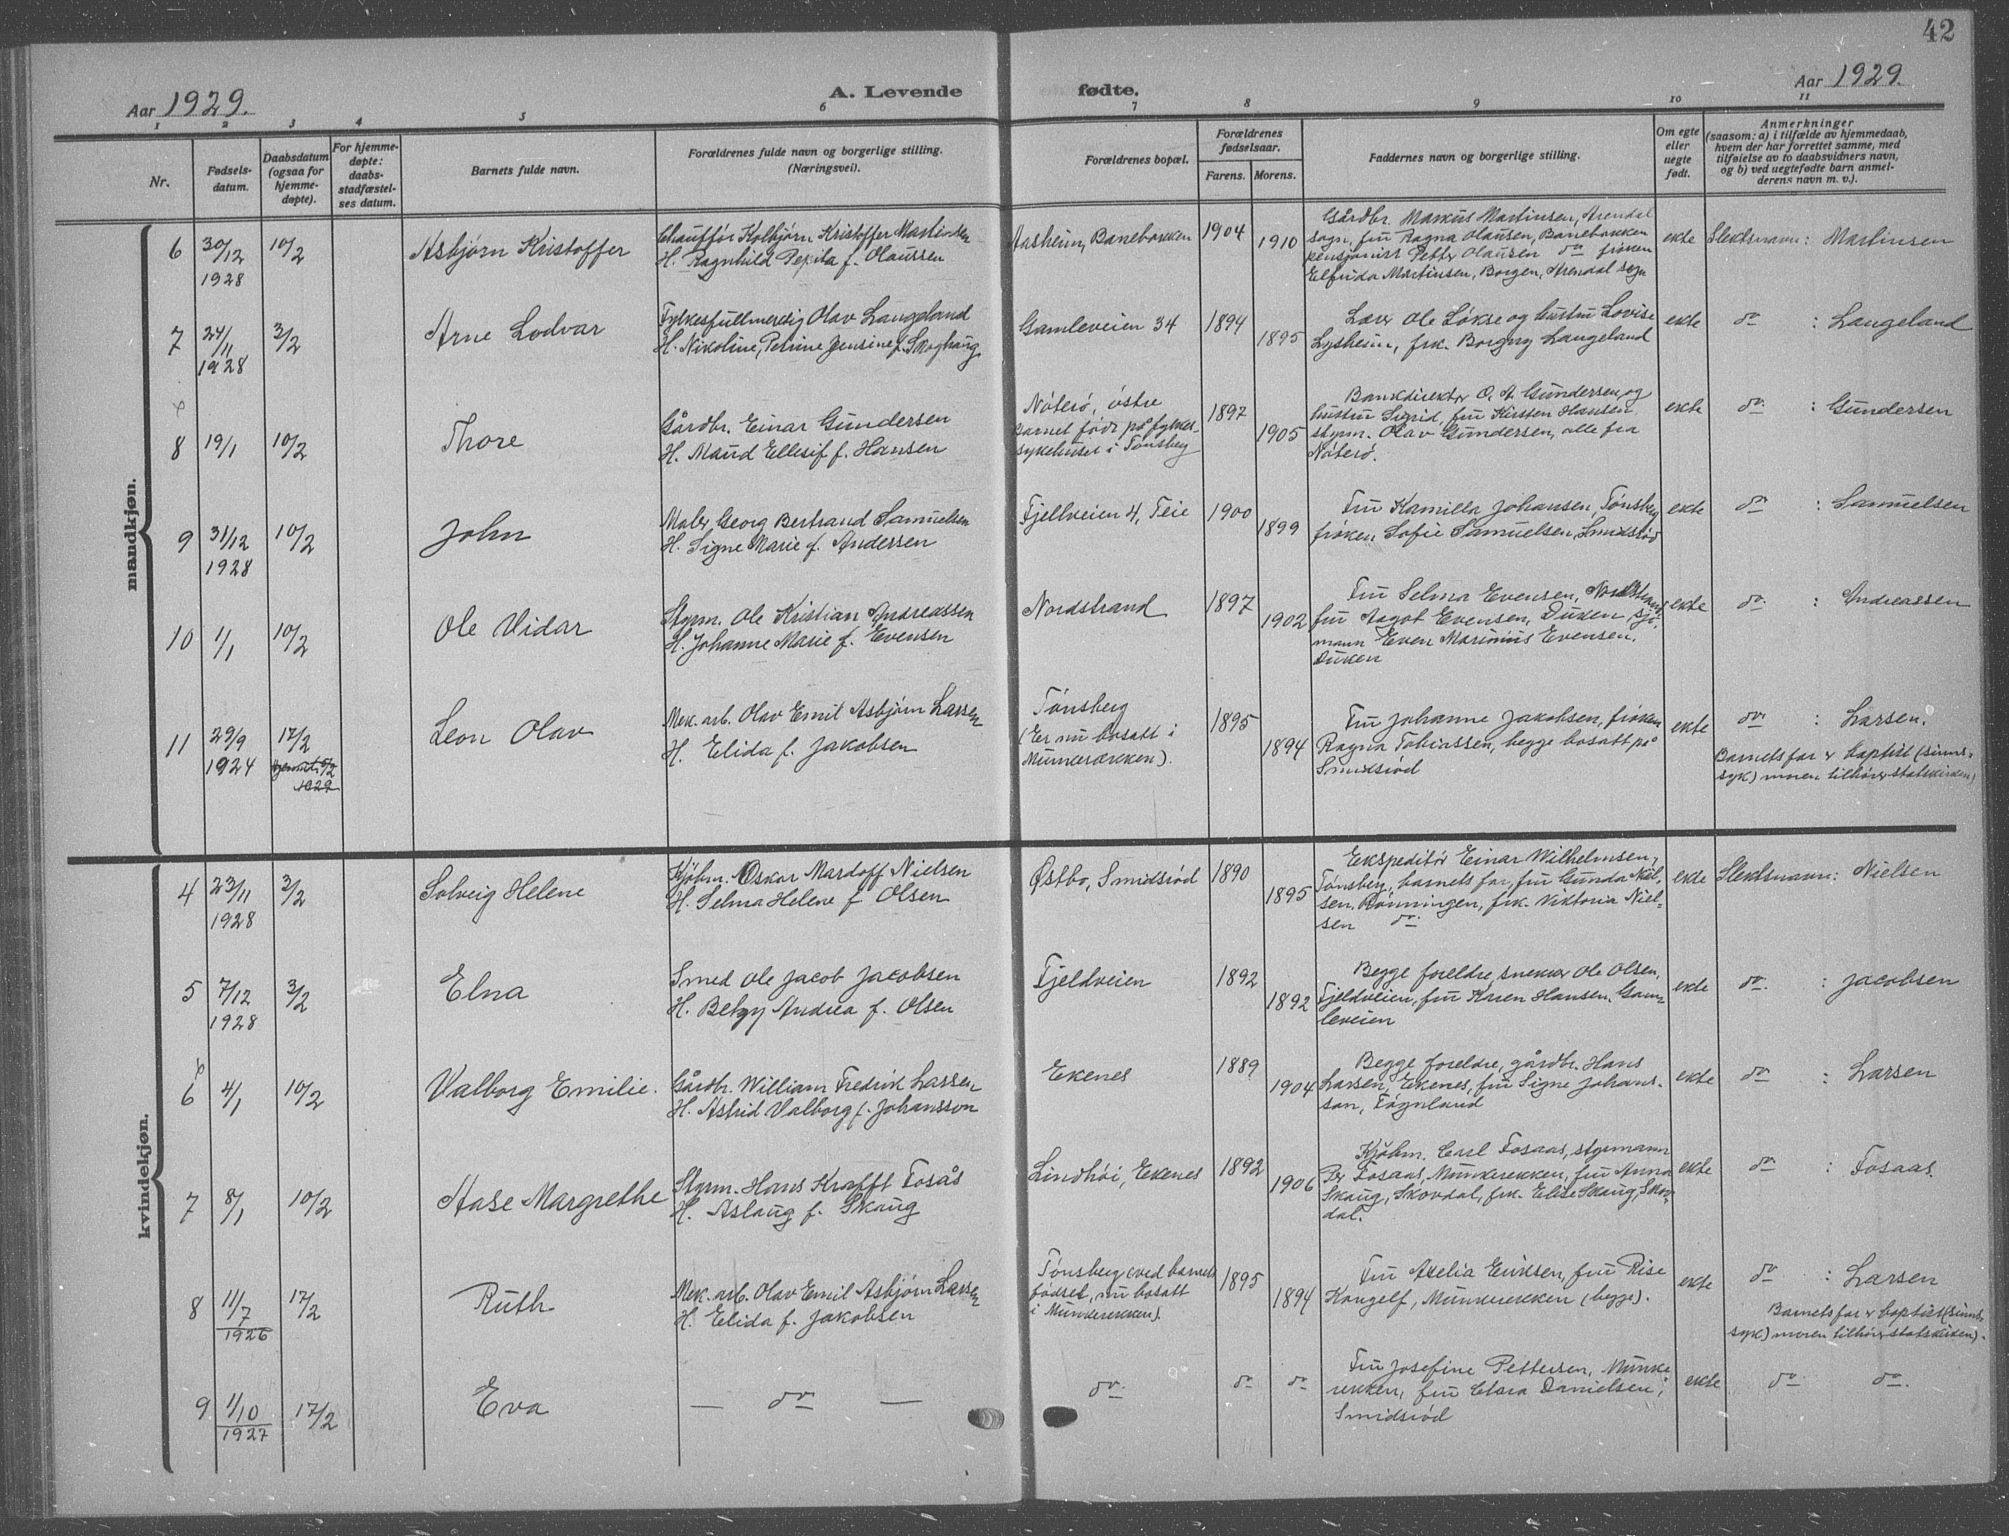 42
Aar 1929.
A. Levende fødte.
Aar 1929.
1 2 3 4 5 6 7 8 9 10 11
Nr.
Fødsels-
datum.
Daabsdatum
(ogsaa for
hjemme-
døpte).
For hjemme-
døpte:
daabs-
stadfæstel-
ses datum.
Barnets fulde navn.
Forældrenes fulde navn og borgerlige stilling.
(Næringsvei).
Forældrenes bopæl.
Forældrenes
fødselsaar.
Farens. Morens.
Faddernes navn og borgerlige stilling.
Om egte
eller
uegte
født.
Anmerkninger
(saasom: a) i tilfælde av hjemmedaab,
hvem der har forrettet samme, med
tilføielse av to daabsvidners navn,
og b) ved uegtefødte barn anmel-
derens navn m. v.).
mandkjøn.
6
30/12
1928
10/2
Asbjørn Kristoffer
Chauffør Kolbjørn Kristoffer Martinsen
H. Ragnhild Pepita f. Olaussen
Aasheim, Banebakken
1904
1910
Gårdbr. Markus Martinsen, Arendal
sogn, fru Ragna Olausen, Banebakken
pensjonist Petter Olausen do frøken
Elfrida Martinsen, Borgen, Arendal sogn
ekte
Slektsnavn: Martinsen
7
24/11
1928
3/2
Arne Lodvar
Fylkesfullmektig Olav Langeland
H. Nikoline, Petrine Jensine f. Skoghaug
Gamleveien 34
1894
1895
Lærer Ole Løkse og hustru Lovise
Lysheim, frk. Borgny Langeland
ekte
do : Langeland
8
19/1
10/2
Thore
Gårdbr. Einar Gundersen
H. Maud Ellesif f. Hansen
Nøterø, østre
Barnet født på fylkes-
sykehuset i Tønsberg
1897
1905
Bankdirektør O. A. Gundersen og
hustru Sigrid, fru Kirsten Hansen,
styrm. Olav Gundersen, alle fra
Nøterø.
ekte
do : Gundersen
9
31/12
1928
10/2
John
Maler Georg Bertrand Samuelsen
H. Signe Marie f. Andersen
Fjellveien 4, Teie
1900
1899
Fru Kamilla Johansen, Tønsberg
frøken Sofie Samuelsen, Smidsrød
ekte
do : Samuelsen
10
1/1
10/2
Ole Vidar
Styrm. Ole Kristian Andreassen
H. Johanne Marie f. Evensen
Nordstrand
1897
1902
Fru Selma Evensen, Nordstrand,
fru Aagot Evensen, Duken, sjø-
mann Even Marinius Evensen,
Duken
ekte
do : Andreassen
11
29/9
1924
17/2
1929
Leon Olav
Mek. arb. Olav Emil Asbjørn Larsen
H. Elida f. Jakobsen
Tønsberg
(Er nu bosatt i
Munkerekken).
1895
1894
Fru Johanne Jakobsen, frøken
Ragna Tobiassen, begge bosatt på
Smidsrød
ekte
do : Larsen.
Barnets far er baptist (sinns-
syk) moren tilhører statskirken)
kvindekjøn.
4
23/11
1928
3/2
Solveig Helene
Kjøbm. Oskar Mardoff Nielsen
H. Selma Helene f. Olsen
Østbo, Smidsrød
1890
1895
Ekspeditør Einar Wilhelmsen,
Tønsberg, barnets far, fru Gunda Niel-
sen, Bonningen, frk. Viktoria Niel-
sen do
ekte
Slektsnavn: Nielsen
5
7/12
1928
3/2
Elna
Smed Ole Jacob Jacobsen
H. Betzy Andrea f. Olsen
Fjeldveien
1892
1892
Begge foreldre, snekker Ole Olsen,
Fjeldveien, fru Karen Hansen, Gam-
leveien
ekte
do : Jacobsen
6
4/1
10/2
Valborg Emilie.
Gårdbr. William Fredrik Larsen
H. Astrid Valborg f. Johansson
Ekenes
1889
1904
Begge foreldre, gårdbr. Hans
Larsen, Ekenes, fru Signe Johans-
son, Tøgnland
ekte
do : Larsen
7
8/1
10/2
Aase Margrethe
Styrm. Hans Krafft Fosås
H. Aslaug f. Skaug
Lindhøi, Ekenes
1892
1906
Kjøbm. Carl Fosaas, styrmann
Per Fosaas, Munkerekken, fru Anna
Skaug, Skovdal, frk. Elise Skaug, Skov-
dal.
ekte
do : Fosaas.
8
11/7
1926
17/2
Ruth
Mek. arb. Olav Emil Asbjørn Larsen
H. Elida f. Jakobsen
Tønsberg (ved barnets
fødsel, nu bosatt
i Munkerekken).
1895
1894
Fru Axelia Eriksen, fru Rise
Kongelf, Munkerekken (begge).
ekte
do : Larsen
Barnets far er baptist (sinns-
syk) moren tilhører statskirken).
9
1/10
1927
17/2
Eva
— do —
do
do do
Fru Josefine Pettersen, Munke-
rekken, fru Clara Danielsen,
Smidsrød
ekte
do do.